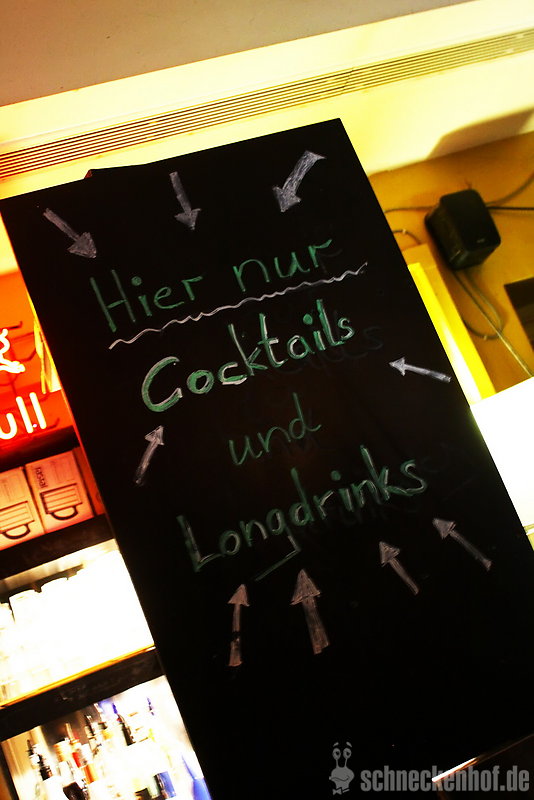 Hier nur
Cocktails
und
Longdrinks
ull
schneckenhof.de